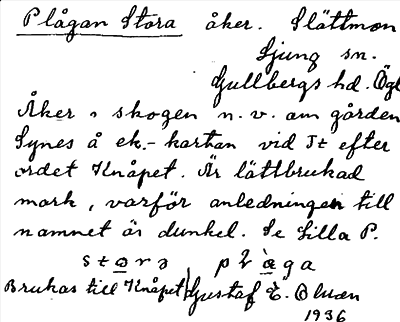 Plågan Stora åker. Slättmon
Ljung sn.
Gullbergs hd. Ögl
Åker i skogen n.v. om gården
Synes å ek.-kartan vid St efter
ordet Knåpet. Är lättbrukad
mark, varför anledningen till
namnet är dunkel. Se Lilla P.
Brukas till Knåpet Gustaf E.
1936